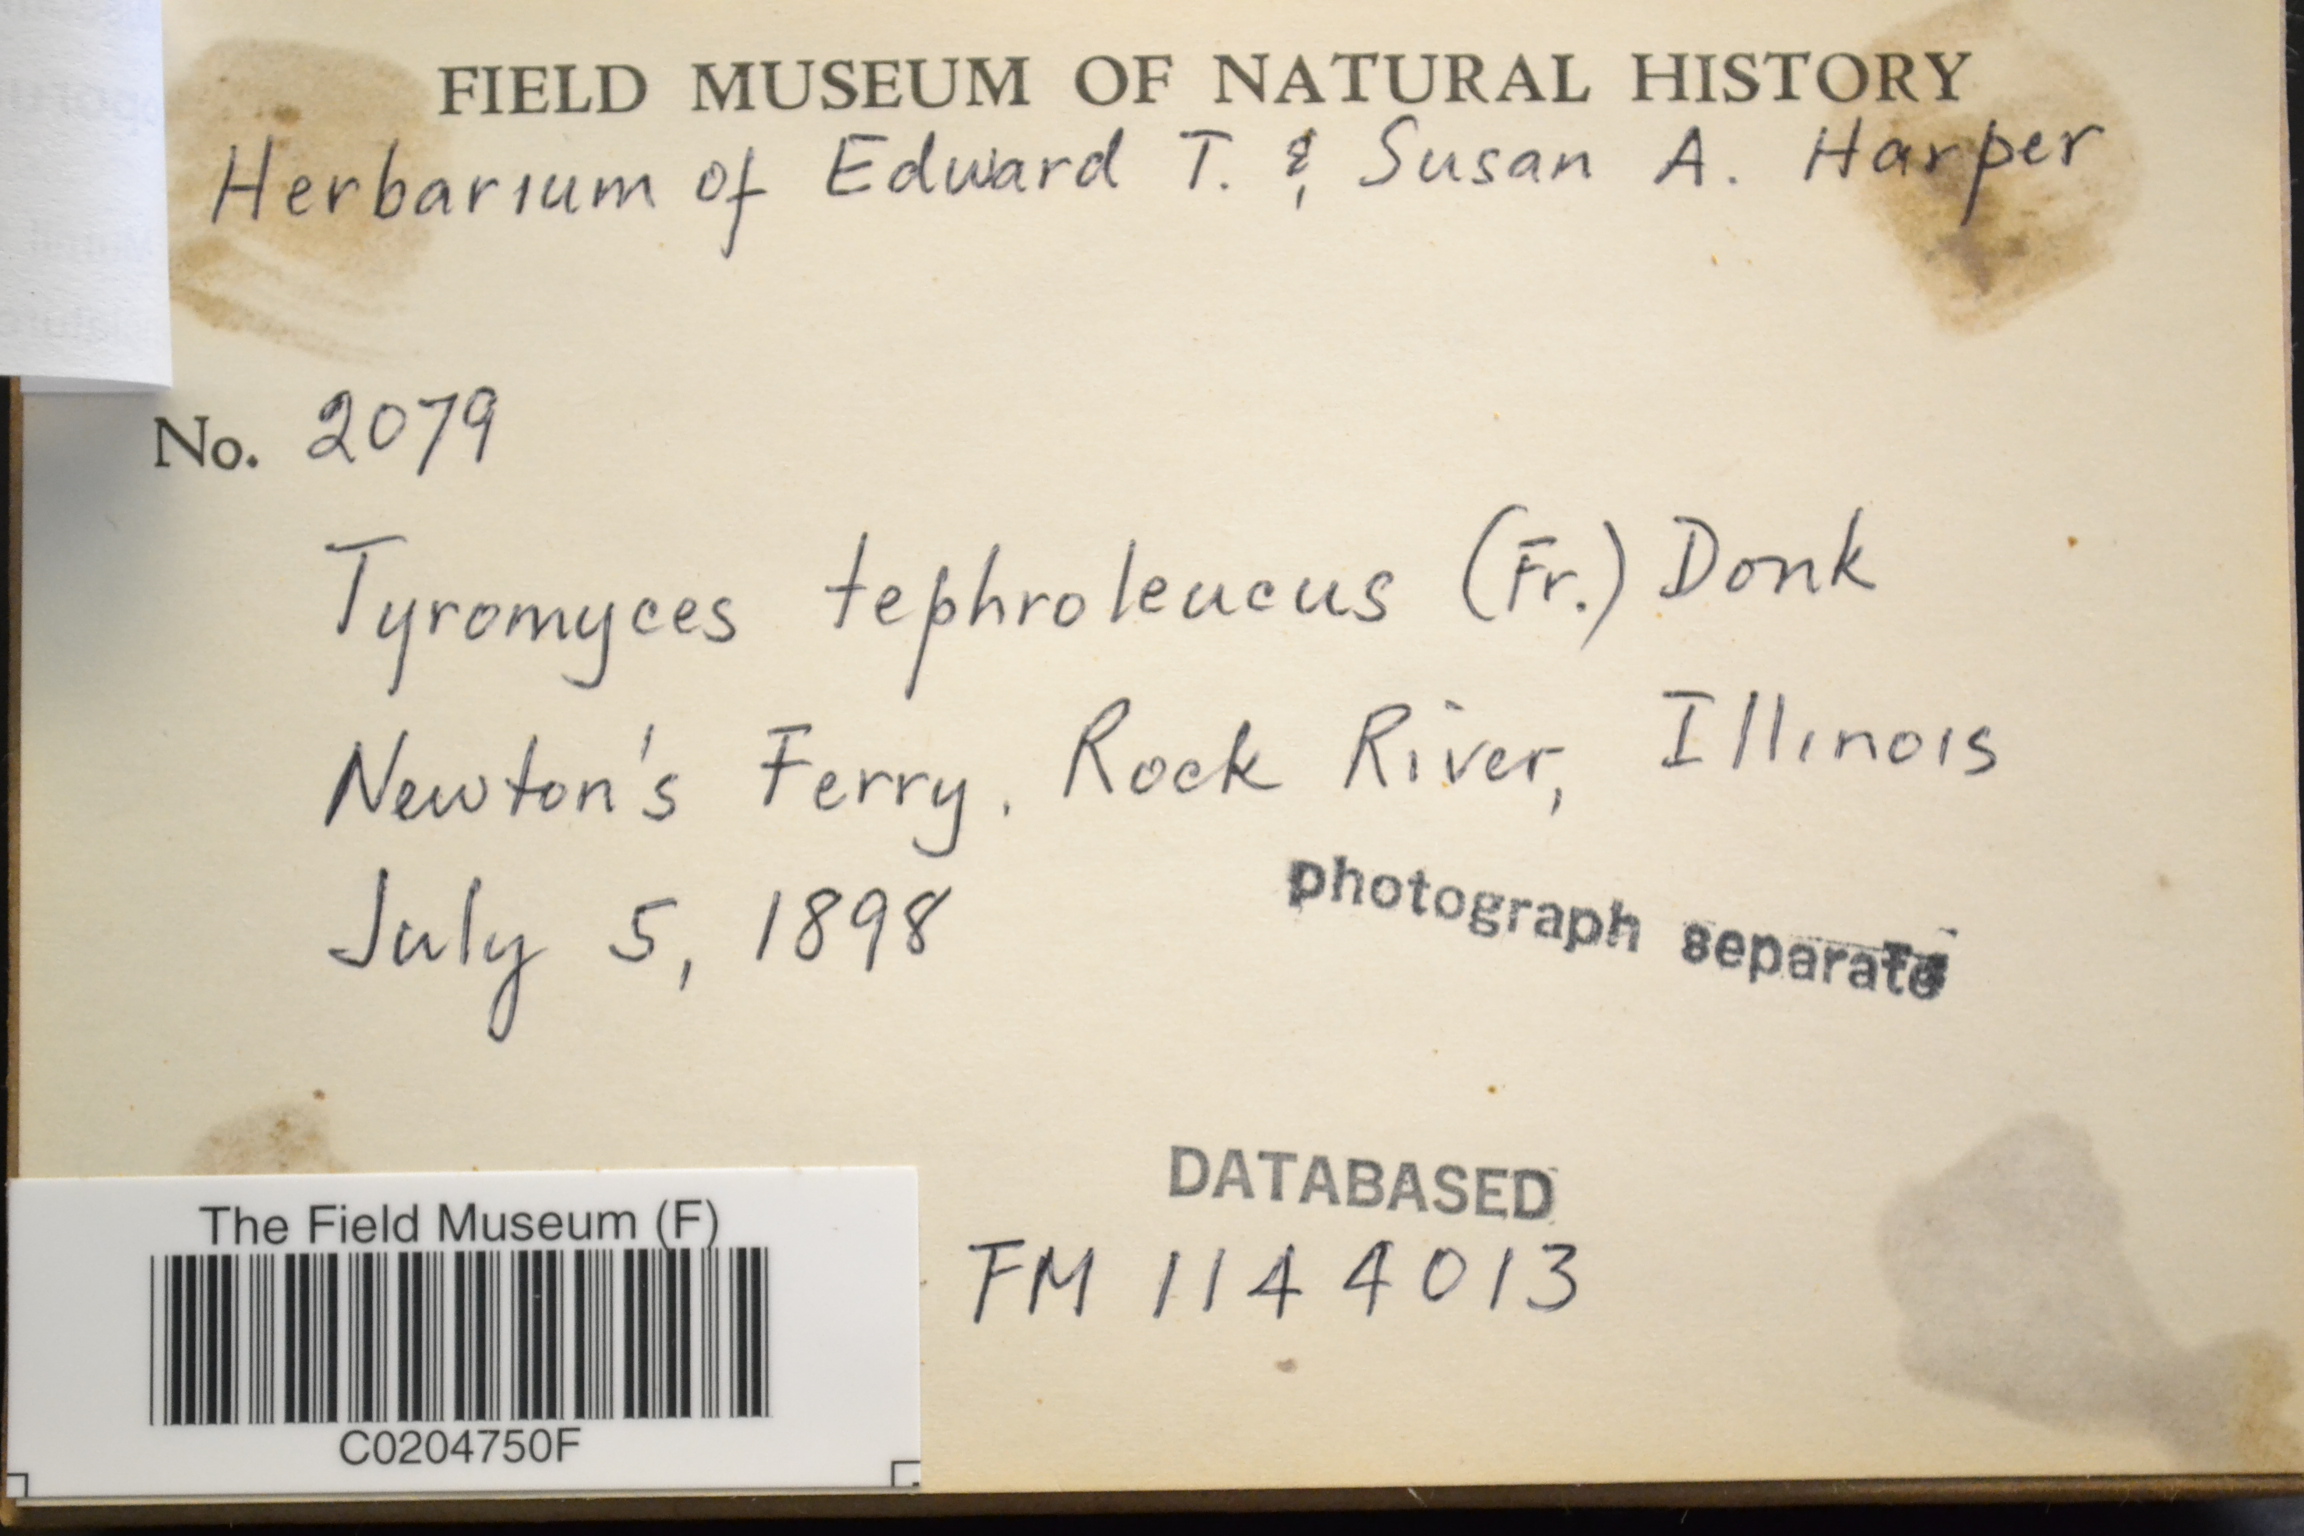 FIELD MUSEUM OF NATURAL HISTORY
Herbarium of Edward T. & Susan A. Harper
No. 2079
Tyromyces tephroleucus (Fr.) Donk
Newton's Ferry. Rock River, Illinois
July 5, 1898
photograph separate
DATABASED
FM 1144013
The Field Museum (F)
C0204750F